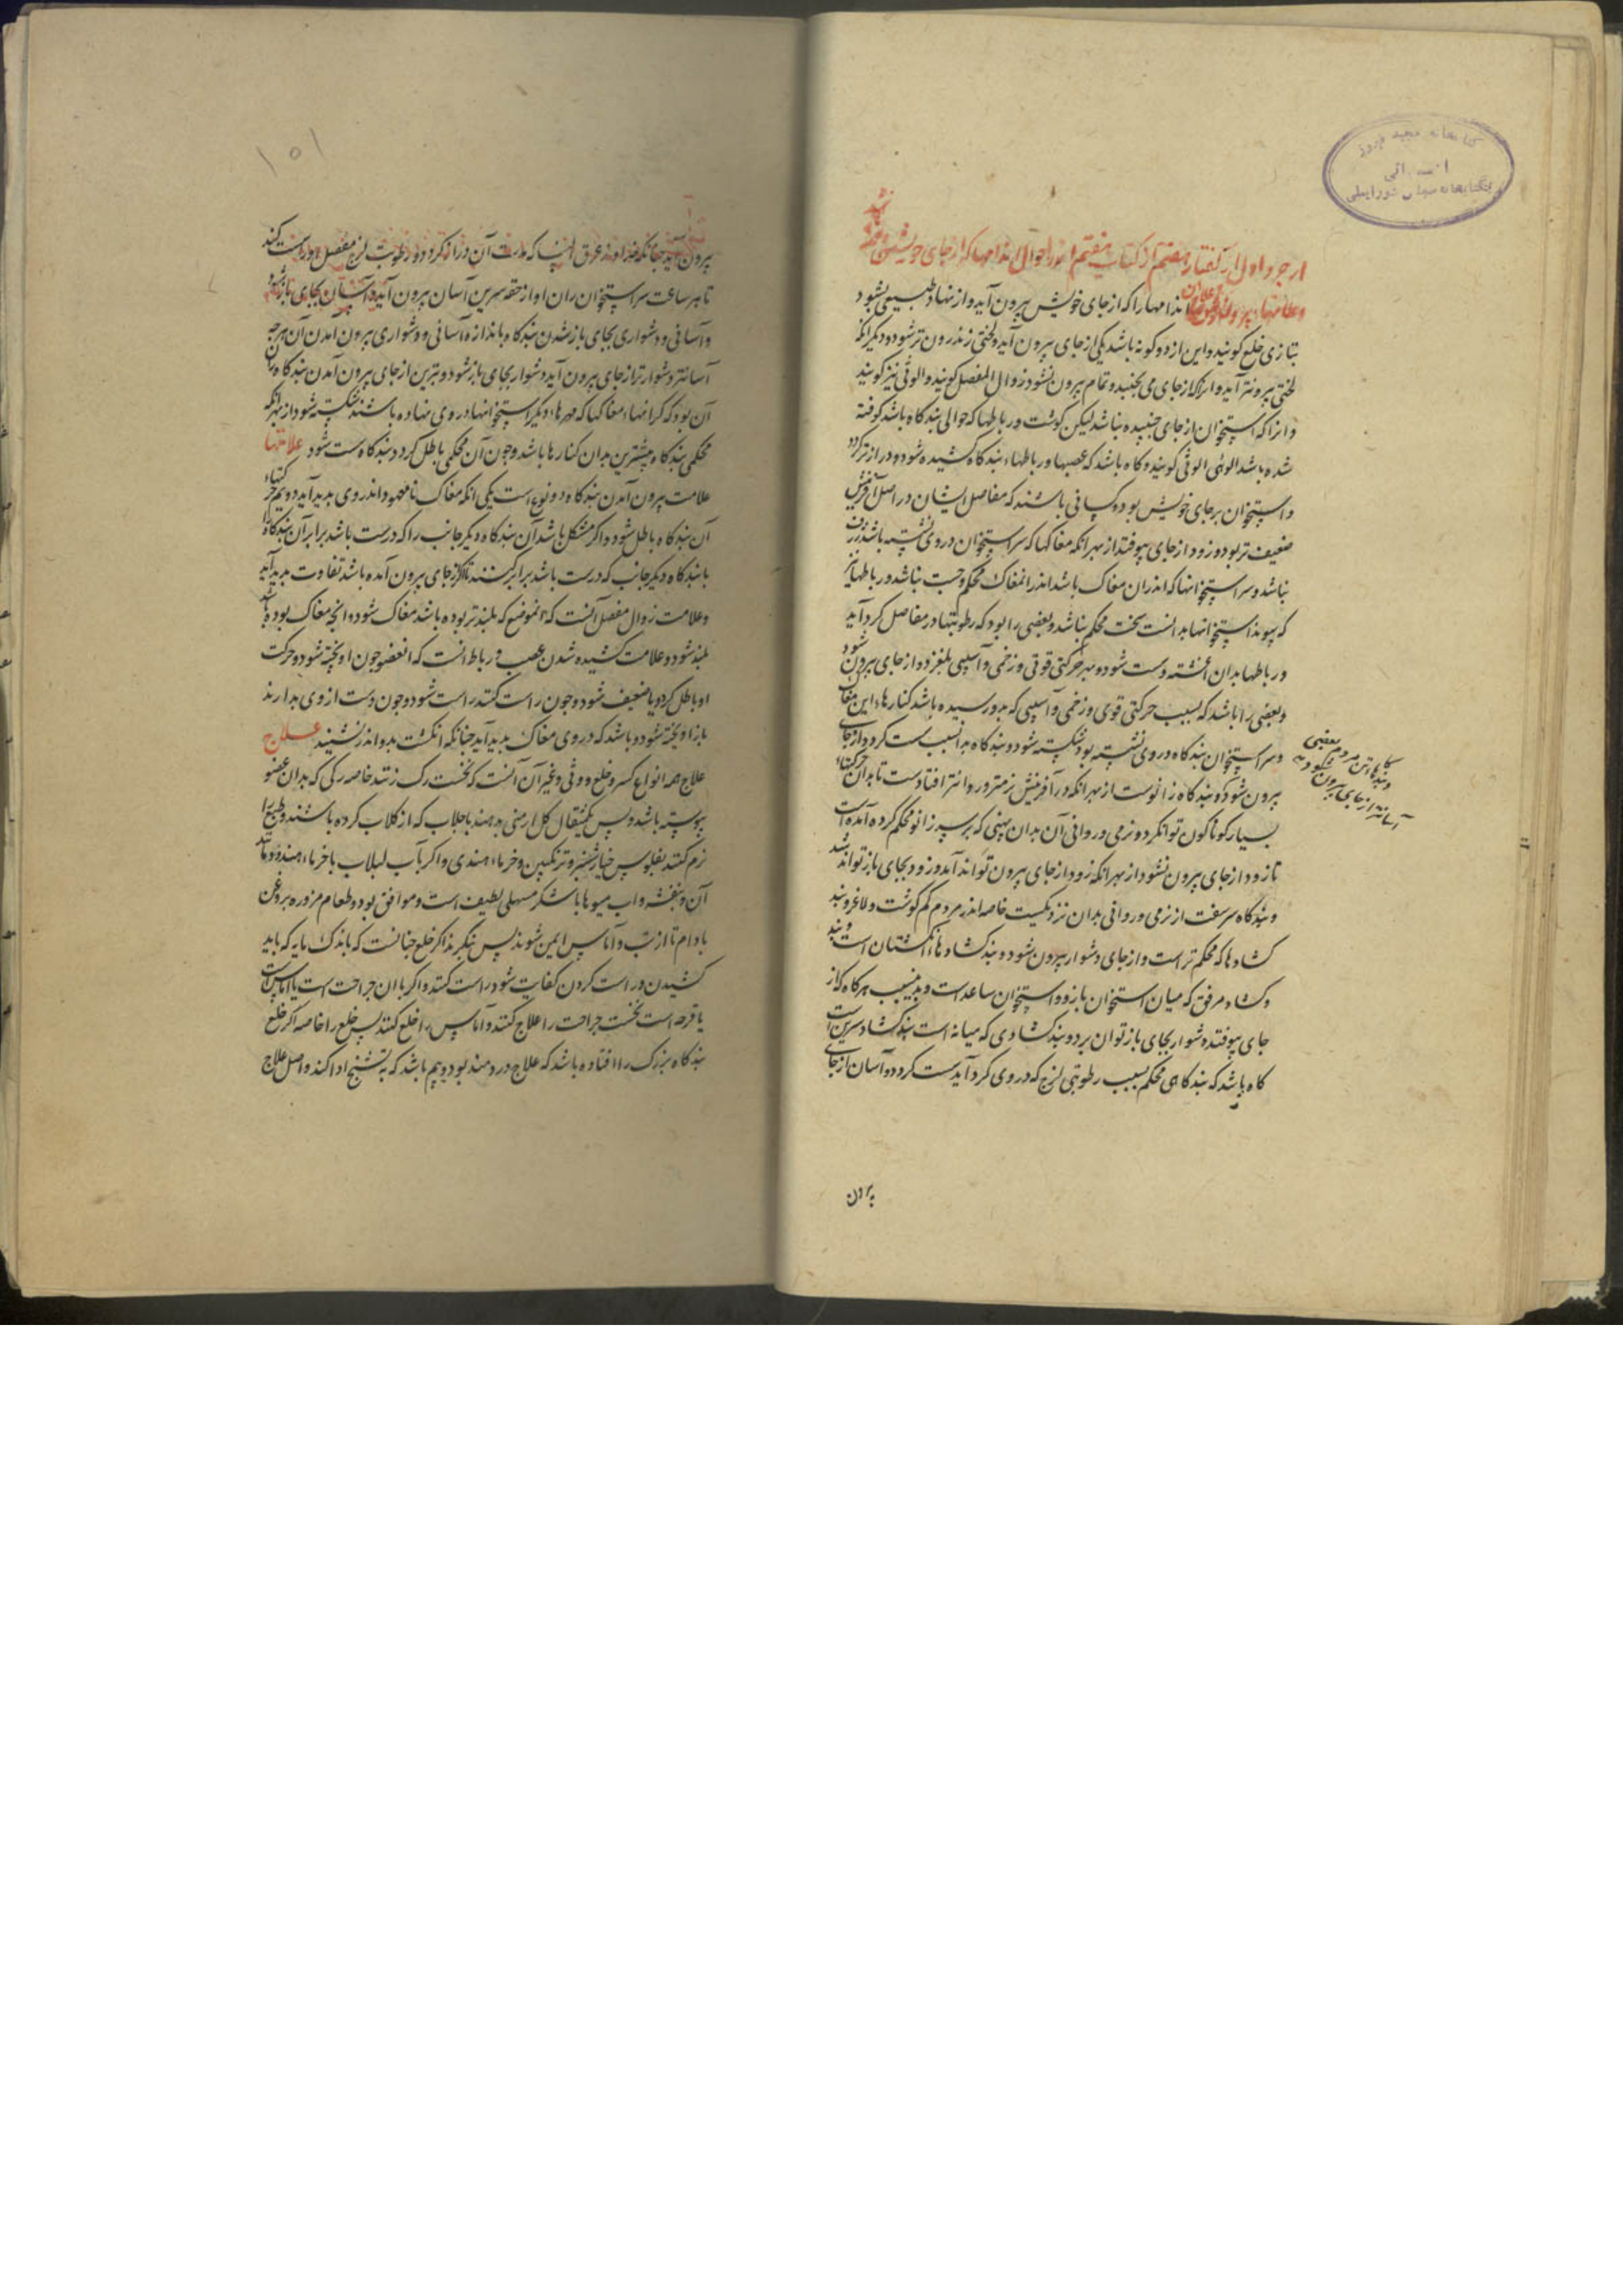 از جزو اول از گفتار هفتم از کتاب هفتم اندر احوال اندامها که از جای خویش
اندامها را که از جای خویش بیرون آید و از نهاد طبیعی بشود
بتازی خلع گویند و این از دو گونه باشد یکی از جای بیرون آید و لختی زندرون تر شود و دیگر انکه
لختی بیرونتر آید و انرا که از جای می بجنبد و تمام بیرون نشود زوال المفصل گویند و الوثی نیز گویند
و انرا که استخوان از جای جنبیده نباشد لیکن گوشت و رباطها که حوالی بندگاه باشد کوفته
شده باشد الوثی گویند و گاه باشد که عصبها و رباطهاء بندگاه کشیده شود و دراز تر گردد
و استخوان بر جای خویش بود و کسانی باشند که مفاصل ایشان در اصل آفرینش
ضعیف تر بود و زود از جای بیوفتد از بهر انکه مغاکها که سر استخوان در وی نشسته باشد ژرف
نباشد و سر استخوانها که اندران مغاک باشد اندر انمغاک محکم و چست نباشد و رباطها نیز
که پیوند استخوانها بدانست سخت محکم نباشد و بعضی را بود که رطوبتها در مفاصل گرد آید
و رباطها بدان اغشته و سست شود و بهر حرکتی قوتی و زخمی و آسیبی بلغزد و از جای بیرون شود
و بعضی را باشد که بسبب حرکتی قوی و زخمی و آسیبی که بدو رسیده باشد کنارهاء این مغاک
و سر استخوان بندگاه در وی نشسته بود شکسته شود و بندگاه بدانسبب سست گردد و از جای
بیرون شود و بندگاه زانوست از بهر انکه در آفرینش نرمتر و روانتر افتادست تا بدان حرکتهاء
بسیار گوناگون تواند کرد و نرمی و روانی آن بدان پهنی که بر سر زانو محکم کرده آمده است
تا زود از جای بیرون نشود از بهر انکه زود از جای بیرون تواند آمد و زود بجای باز تواند شد
و بندگاه سر سفت از نرمی و روانی بدان نزدیکست خاصه اندر مردم کم گوشت و لاغر و بند
گشادها که محکم تر است و از جای دشوار بیرون شود و بند گشادهاء انگشتان است و بند
و گشاد مرفق که میان استخوان بازو و استخوان ساعد است و بدینسبب هرگاه که از
جای بیوفتد دشوار بجای باز توان برد و بند گشادی که میانه است بند گشاد سرین است
گاه باشد که بندگاهی محکم بسبب رطوبتی لزج که در وی گرد آید سست گردد و آسان از جای
بیرون
بیرون آید چنانکه خداوند عرق النسا که مدت آن دراز گردد و رطوبت لزج مفصل او را سست کند
تا هر ساعت سر استخوان ران او از حقه سرین آسان بیرون آید و آسان بجای باز شود
و آسانی و دشواری بجای باز شدن بندگاه باندازه آسانی و دشواری بیرون آمدن آن هرچه
آسانتر و دشوارتر از جای بیرون آید دشوار بجای باز شود و بترین از جای بیرون آمدن بندگاه
آن بود که کرانهاء مغاکها که مهره ها و دیگر استخوانها در وی نهاده باشند شکسته شود از بهر انکه
محکمی بندگاه بیشترین بدان کنارها باشد و چون آن محکمی باطل گردد بندگاه سست شود علامتها
علامت بیرون آمدن بندگاه دو نوع است یکی انکه مغاک نامعهود اندر وی پدید آید دویم حرکتهاء
آن بندگاه باطل شود و اگر مشکل باشد آن بندگاه دیگر جانب را که درست باشد برابر آن بندگاه
با بندگاه دیگر جانب که درست باشد برابر کنند تا اگر از جای بیرون آمده باشد تفاوت پدید آید
و علامت زوال مفصل آنست که انموضع که بلندتر بوده باشد مغاک شود و انچه مغاک بوده باشد
بلند شود و علامت کشیده شدن عصب و رباط انست که انعضو چون اویخته شود و حرکت
او باطل گردد یا ضعیف شود و چون راست کنند راست شود و چون دست از وی بدارند
باز اویخته شود و باشد که در وی مغاک پدید آید چنانکه انگشت بدو اندر نشیند علاج
علاج همه انواع کسر و خلع و وثی و غیر آن آنست که نخست رگ زنند خاصه رگی که بدان عضو
پیوسته باشد و پس یکمثقال گل ارمنی بدهند با جلاب که از گلاب کرده باشند و طبع را
نرم کنند بفلوس خیارشنبر و ترنگبین و خرماء هندی و اگر بآب لبلاب با خرماء هندو و مانند
آن و بنفشه و اب میوها با شکر مسهلی لطیف است و موافق بود و طعام مزوره بروغن
بادام تا از تب و آماس ایمن شوند پس بنگرند اگر خلع چنانست که باندک مایه که باید
کشیدن و راست کردن کفایت شود راست کنند و اگر با ان جراحت است یا اماس است
یا قرحه است نخست جراحت را علاج کنند و آماس را خلع کنند پس خلع را خاصه اگر خلع
بندگاه بزرگ را افتاده باشد که علاج دردمند بود و بیم باشد که بتشنج ادا کند و اصل علاج